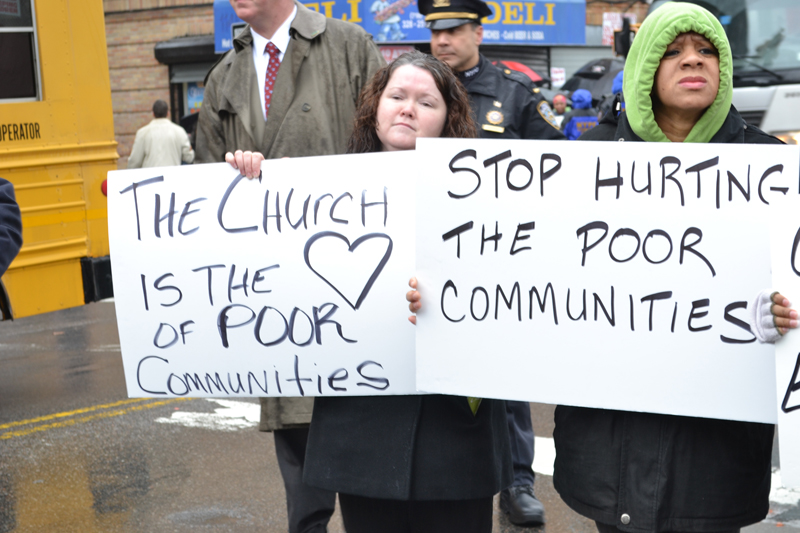 OPERATOR
DELI
DELI
THE CHURCH
IS THE ♡
OF POOR
COMMUNITIES
STOP HURTING
THE POOR
COMMUNITIES